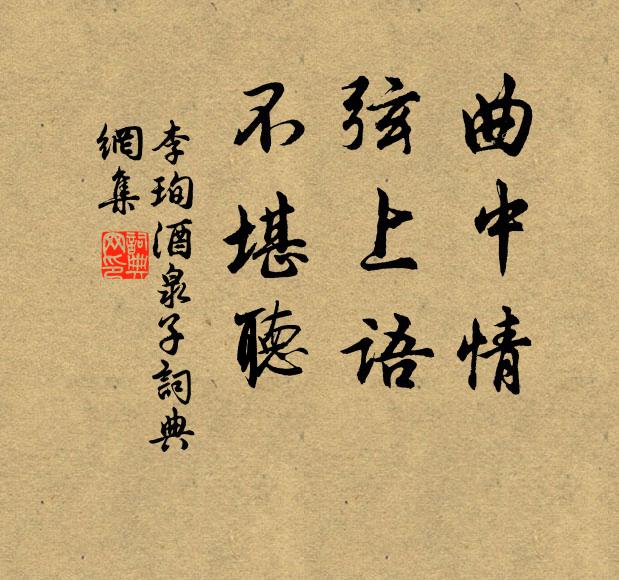 曲中情
弦上语
不堪聽
李珣酒泉子詞典
網集
詞典
网印